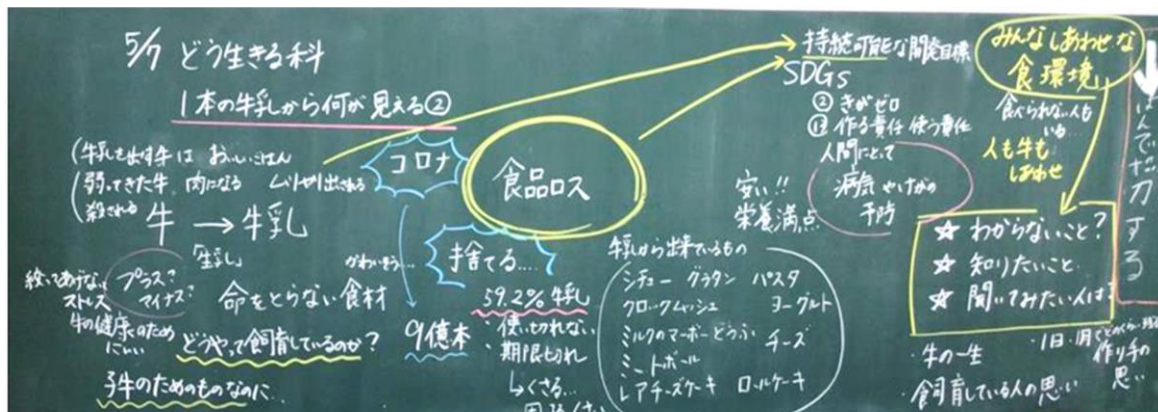 5/7 どう生きる科
1本の牛乳から何が見える②
(牛乳を出す牛は おいしいごはん
弱ってきた牛 肉になる
殺される
牛 → 牛乳
「生乳」
プラス?
マイナス?
ストレス
牛の健康のため
にいい
命をとらない食材
どうやって飼育しているのか?
子牛のためのものなのに…
コロナ
かわいそう…
9億本
食品ロス
捨てる…
59.2% 牛乳
・使い切れない
・期限切れ
↳くさる…
持続可能な開発目標
SDGs
② きがゼロ
⑫ 作る責任 使う責任
人間にとって
病気やけがの
予防
安い!!
栄養満点
牛乳から出来ているもの
シチュー グラタン パスタ
クロックムッシュ ヨーグルト
ミルクのマーボーどうふ チーズ
ミートボール
レアチーズケーキ ロールケーキ
みんなしあわせな
食環境
食べられない人も
いる…
人も牛も
しあわせ
☆ わからないこと?
☆ 知りたいこと…
☆ 聞いてみたい人は?
・牛の一生
・飼育している人の思い
作り手の
思い